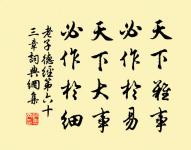 天下難事
必作於易
天下大事
必作於細
老子德經第六十
三章詞典網集